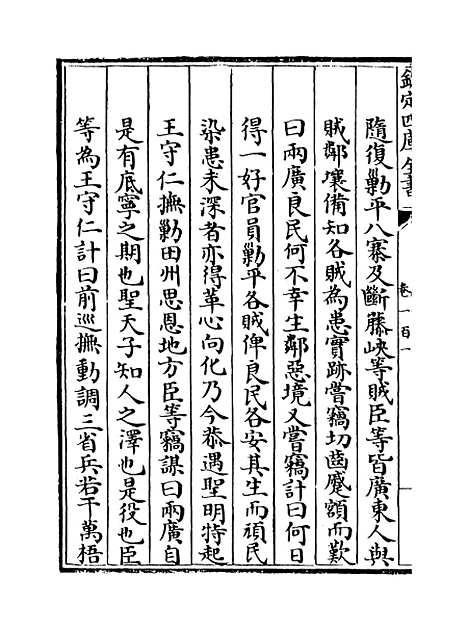 欽定四庫全書
卷一百一
隨復勦平八寨及斷藤峽等賊臣等皆廣東人與
賊鄰壤備知各賊為患實跡嘗竊切齒蹙額而歎
曰兩廣良民何不幸生鄰惡境又嘗竊計曰何日
得一好官員勦平各賊俾良民各安其生而頑民
染患未深者亦得革心向化乃今恭遇聖明特起
王守仁撫勦田州思恩地方臣等竊謀曰兩廣自
是有底寧之期也聖天子知人之澤也是役也臣
等為王守仁計曰前巡撫動調三省兵若干萬梧